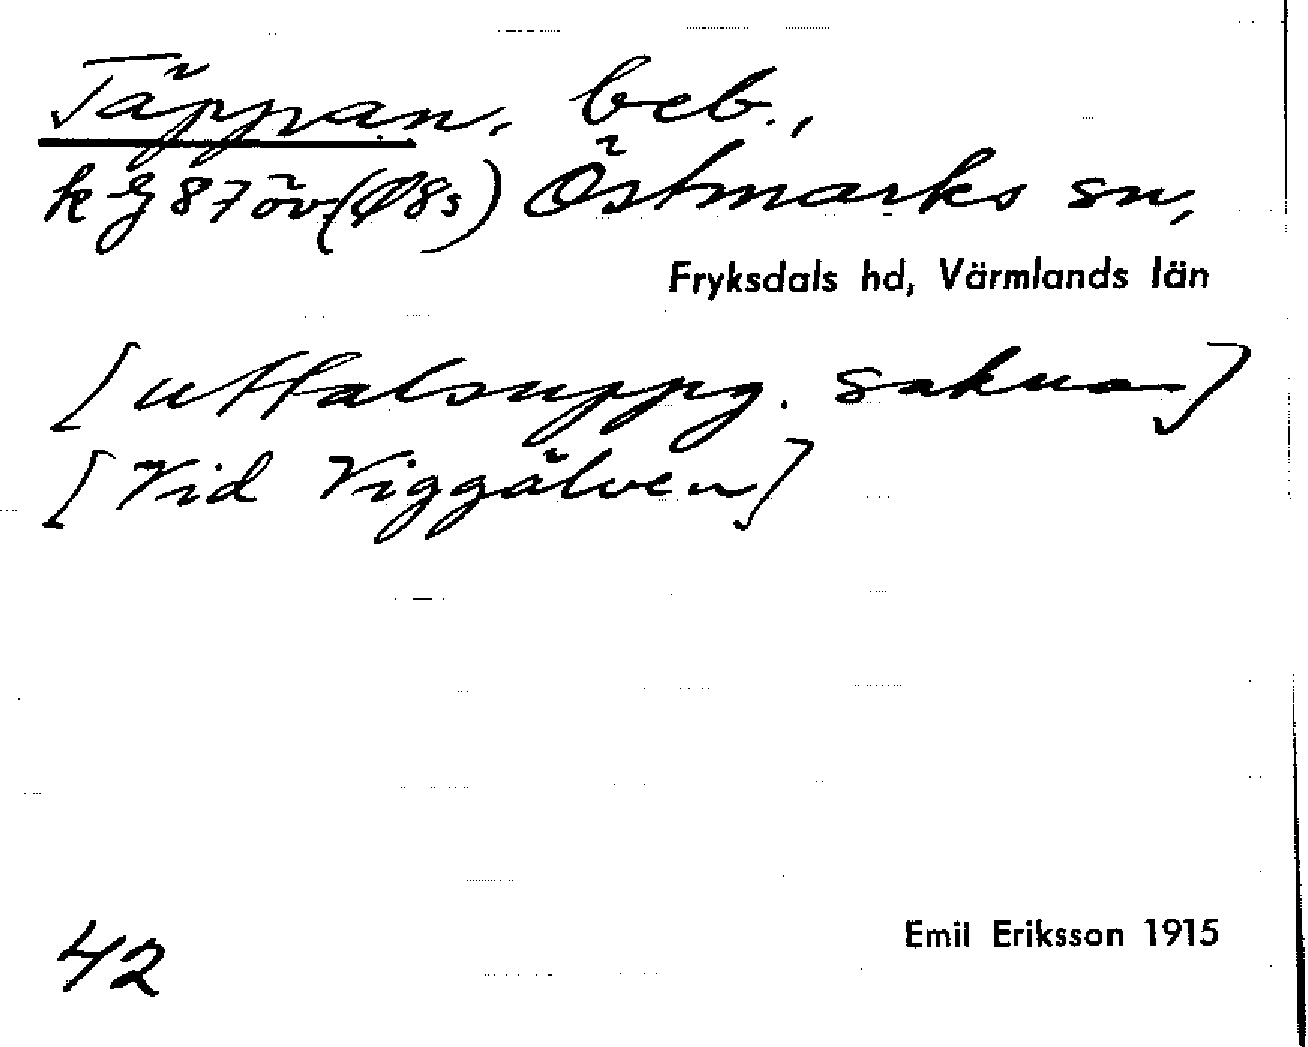 Täppan, beb.,
k G 87 öv (Ø8s) Östmarks sn,
Fryksdals hd, Värmlands län
[uttalsuppg. saknas]
[Vid Viggälven]
42
Emil Eriksson 1915